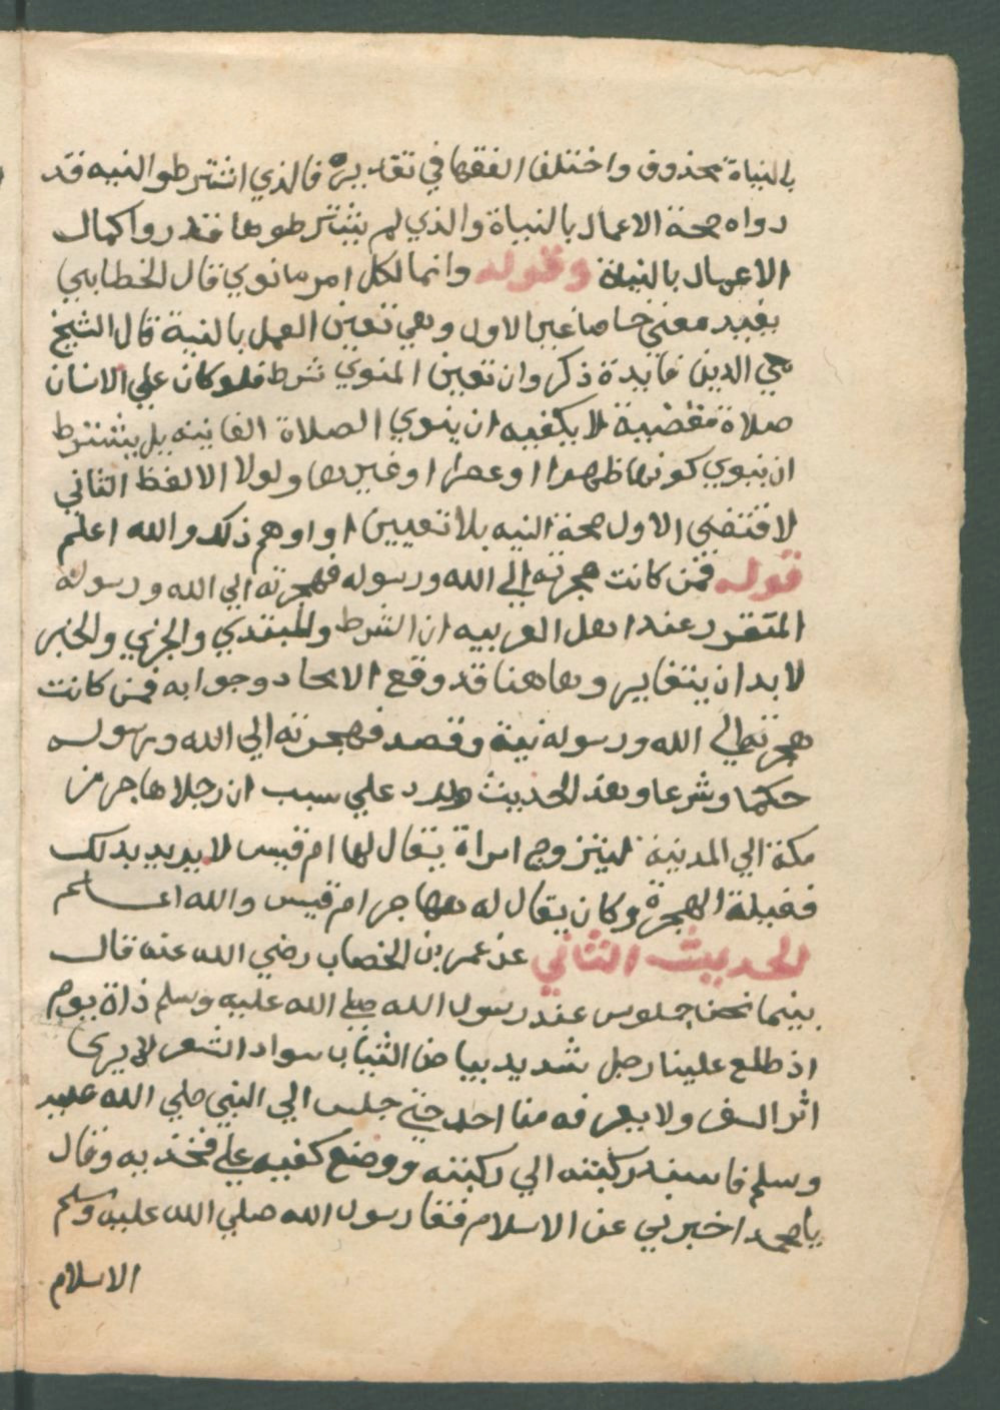 بالنياة محذوف واختلف الفقها في تقديره فالذي اشترطو النيه قد
رواه صحة الاعمال بالنياة والذي لم يشترطوها قدروا كمال
الاعمال بالنياة وقوله وانما لكل امر ما نوي قال الخطابي
يفيد معني خاصا غير الاول وهي تعين العمل بالنية قال الشيخ
محي الدين فايدة ذكر وان تعين المنوي شرط فلو كان علي الانسان
صلاة مقضية لا يكفيه ان ينوي الصلاة الفايته بل يشترط
ان ينوي كونها ظهرا او عصرا او غيرها ولولا الالفظ الثاني
لاقتضي الاول صحة النيه بلا تعيين او اوهم ذلك والله اعلم
قوله فمن كانت هجرته الي الله ورسوله فهجرته الي الله ورسوله
المتقرر عند اهل العربيه ان الشرط والمبتدي والجزي والخبر
لا بد ان يتغاير وهاهنا قد وقع الاتحاد وجوابه فمن كانت
هجرته الي الله ورسوله نية وقصد فهجرته الي الله ورسوله
حكما وشرعا وهذ الحديث ورد علي سبب ان رجلا هاجر من
مكة الي المدينة ليتزوج امراة يقال لها ام قيس لا يريد بدلك
فضيلة الهجرة وكان يقال له مهاجر ام قيس والله اعلم
الحديث الثاني عن عمر بن الخصاب رضي الله عنه قال
بينما نحن جلوس عند رسول الله صلي الله عليه وسلم ذاة يوم
اذ طلع علينا رجل شديد بياض الثياب سواد الشعر لا يري
اثر السفر ولا يعرفه منا احد حتي جلس الي النبي صلي الله عليه
وسلم فاسند ركبته الي ركبته ووضع كفيه علي فخذيه وقال
يا محمد اخبرني عن الاسلام فقا رسول الله صلي الله عليه وسلم
الاسلام